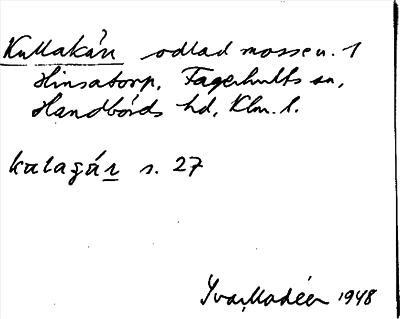 Kullakärr odlad mosse u. 1
Hinsatorp, Fagerhults sn,
Handbörds hd, Klm. l.
kulagár s. 27
Ivar Modéer 1948